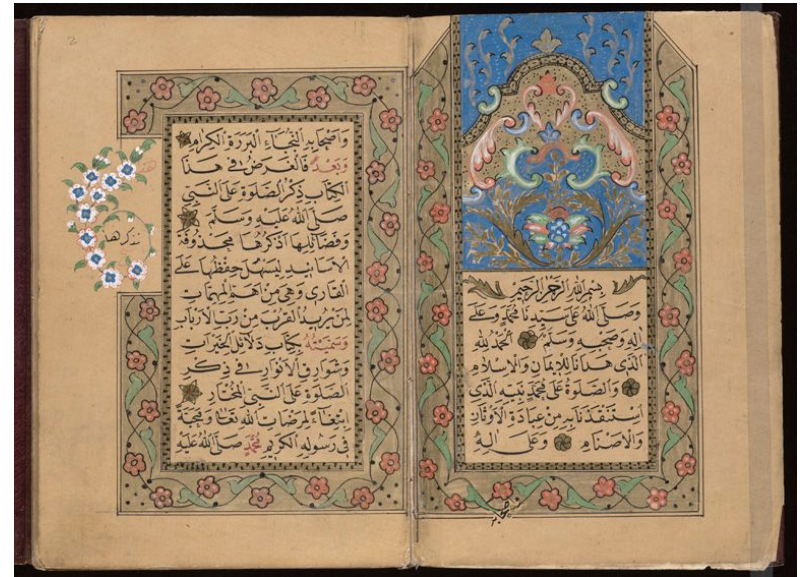 بِسْمِ اللهِ الرَّحْمٰنِ الرَّحِيمِ
وَصَلَّى اللهُ عَلَى سَيِّدِنَا مُحَمَّدٍ وَعَلَى
اٰلِهِ وَصَحْبِهِ وَسَلَّمَ اَلْحَمْدُ لِلّٰهِ
الَّذِى هَدَانَا لِلْاِيمَانِ وَالْاِسْلَامِ
وَالصَّلٰوةُ عَلَى مُحَمَّدٍ نَبِيِّهِ الَّذِى
اسْتَنْقَذَنَا بِهِ مِنْ عِبَادَةِ الْاَوْثَانِ
وَالْاَصْنَامِ وَعَلَى اٰلِهِ
وَاَصْحَابِهِ النُّجَبَاءِ الْبَرَرَةِ الْكِرَامِ
وَبَعْدُ فَالْغَرَضُ فِى هٰذَا
الْكِتَابِ ذِكْرُ الصَّلٰوةِ عَلَى النَّبِىِّ
صَلَّى اللهُ عَلَيْهِ وَسَلَّمَ
وَفَضَائِلِهَا اَذْكُرُهَا مَحْذُوفَةَ
الْاَسَانِيدِ لِيَسْهُلَ حِفْظُهَا عَلَى
الْقَارِى وَهِىَ مِنْ اَهَمِّ الْمُهِمَّاتِ
لِمَنْ يُرِيدُ الْقُرْبَ مِنْ رَبِّ الْاَرْبَابِ
وَسَمَّيْتُهُ بِكِتَابِ دَلَائِلِ الْخَيْرَاتِ
وَشَوَارِقِ الْاَنْوَارِ فِى ذِكْرِ
الصَّلٰوةِ عَلَى النَّبِىِّ الْمُخْتَارِ
اِبْتِغَاءً لِمَرْضَاتِ اللهِ تَعَالٰى وَمَحَبَّةً
فِى رَسُولِهِ الْكَرِيمِ مُحَمَّدٍ صَلَّى اللهُ عَلَيْهِ
2